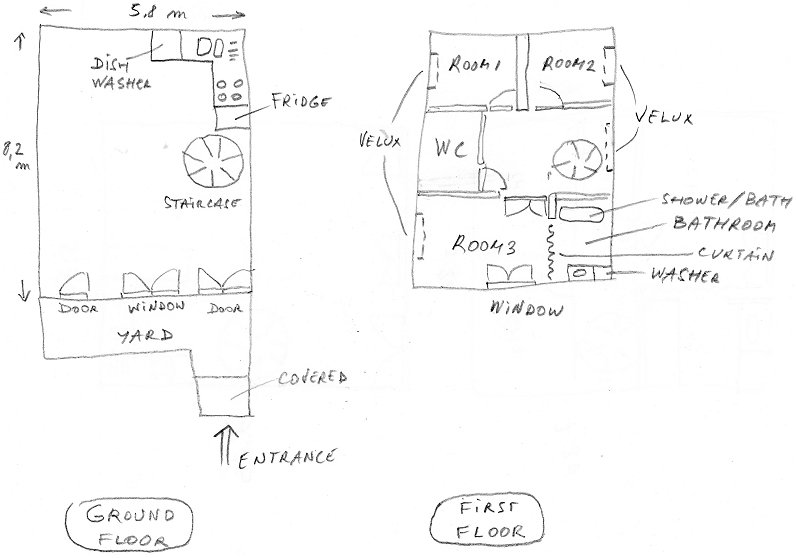 5,8 m
DISH
WASHER
FRIDGE
8,2
m
STAIRCASE
DOOR
WINDOW
DOOR
YARD
COVERED
ENTRANCE
GROUND
FLOOR
ROOM1
ROOM2
VELUX
VELUX
WC
SHOWER/BATH
BATHROOM
ROOM3
CURTAIN
WASHER
WINDOW
FIRST
FLOOR